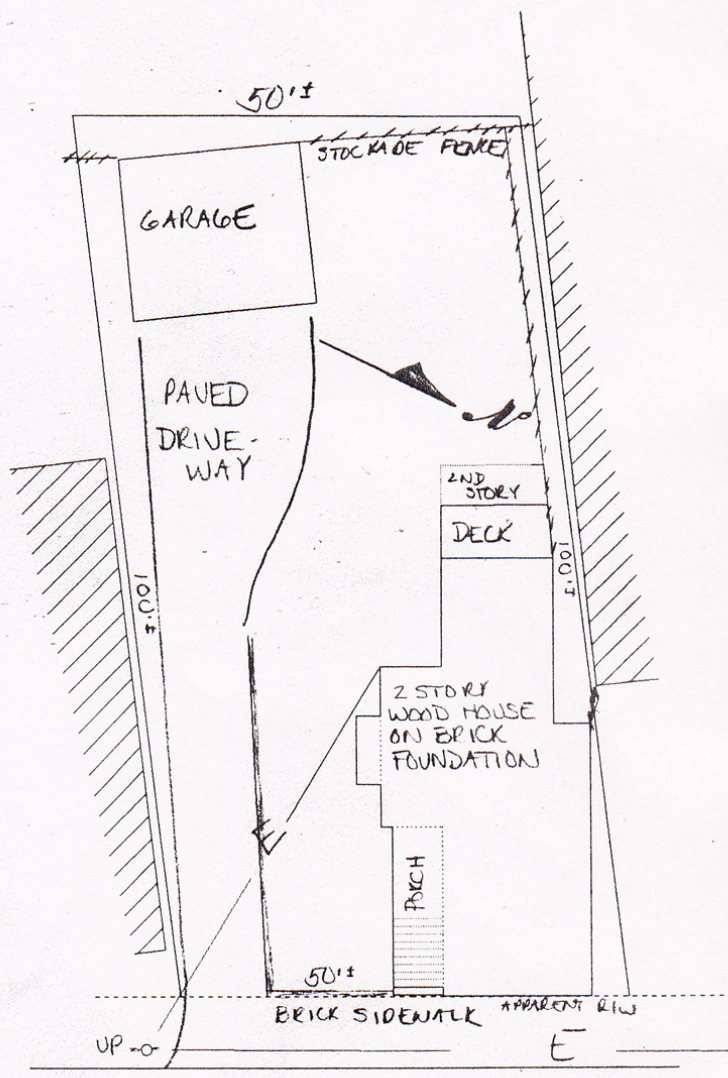 50'±
STOCKADE FENCE
GARAGE
PAVED
DRIVE-
WAY
N
2ND
STORY
DECK
100'±
100'±
2 STORY
WOOD HOUSE
ON BRICK
FOUNDATION
E
PORCH
50'±
BRICK SIDEWALK
APPARENT R/W
UP
E